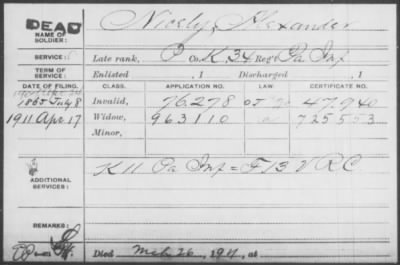 DEAD Nicely, Alexander
NAME OF SOLDIER:
SERVICE: Late rank, P Co. K, 34 Reg't Pa Inf
TERM OF SERVICE: Enlisted , 1 Discharged , 1
DATE OF FILING. CLASS. APPLICATION NO. CERTIFICATE NO.
1865 July 8 Invalid, 76.278 47.940
1911 Apr 17 Widow, 963110 725553
Minor,
K 11 Pa Inf = F 13 V R C
ADDITIONAL SERVICES:
REMARKS:
Died Mch 26, 1911, at